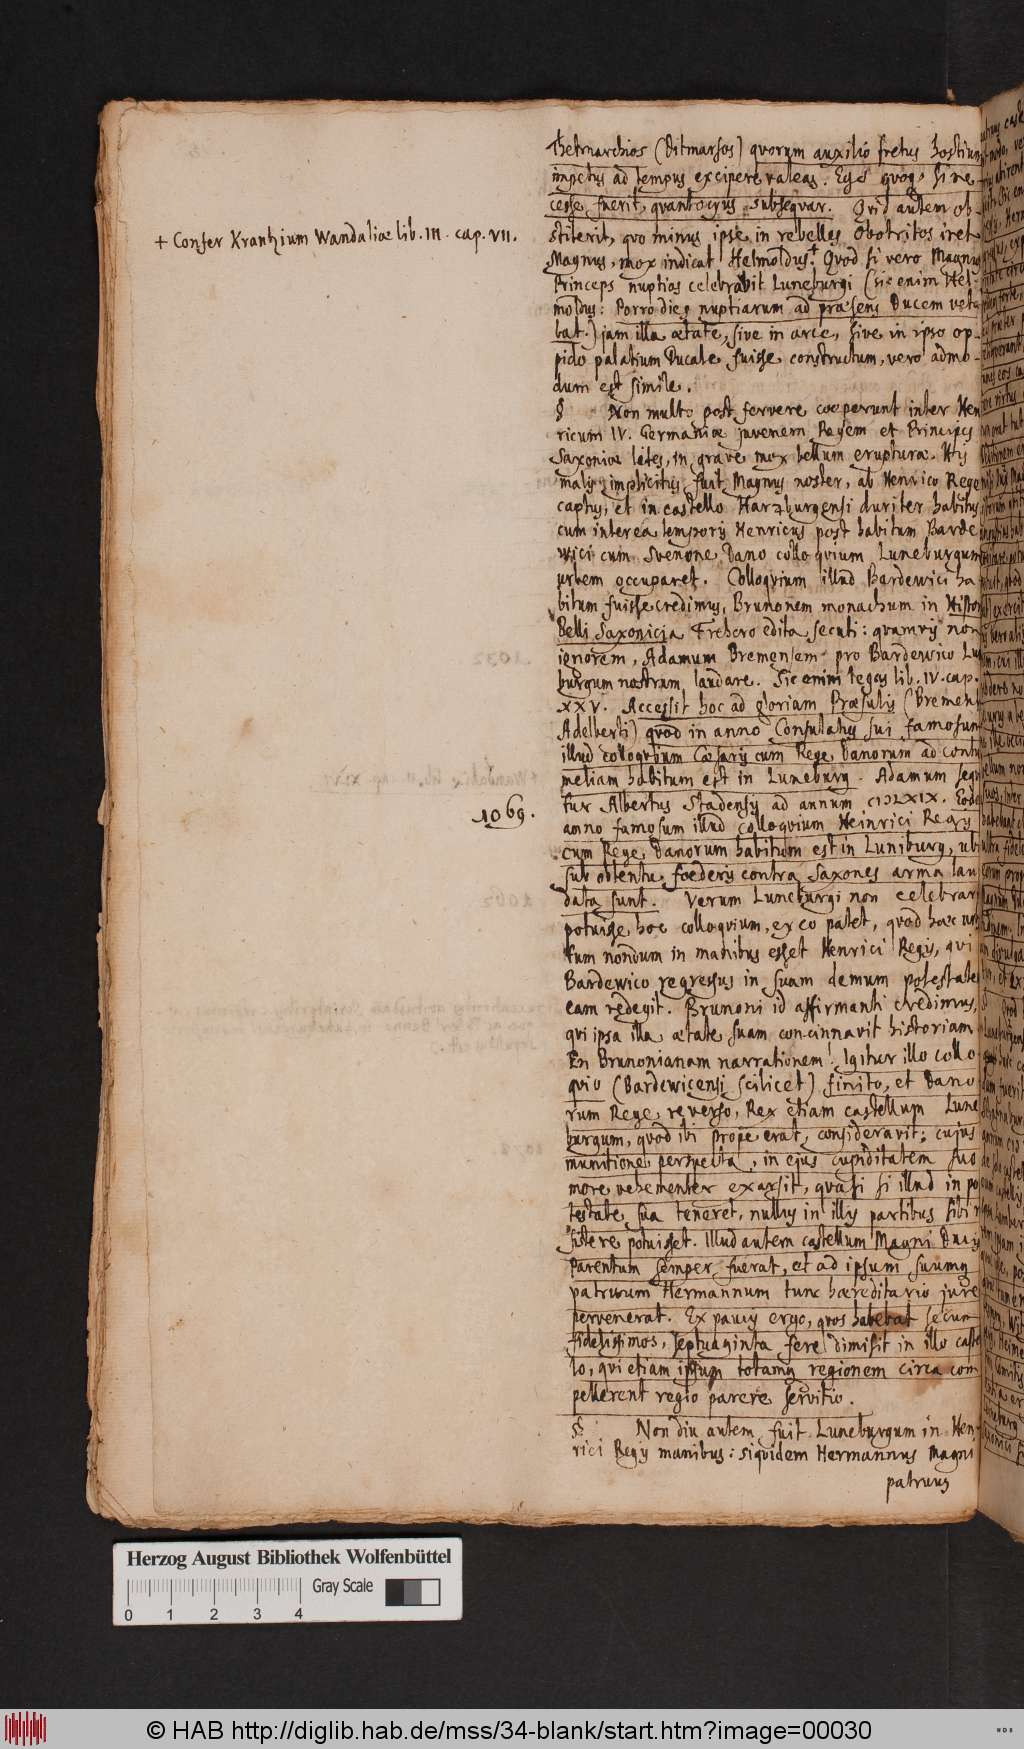 Thetmarchios (Ditmarsos) quorum auxilio fretus hostium
impetus ad tempus excipere valeas. Ego quoq, si ne
cesse fuerit, quantocyus subsequar. Qvid autem ob-
stiterit, quo minus ipse in rebelles Obotritos iret
Magnus, mox indicat Helmoldus.+ Quod si vero Magnus
Princeps nuptias celebrabit Luneburgi (sic enim Hel-
moldus: Porro dies nuptiarum ad præsens Ducem veta
bat.) jam illa ætate, sive in arce, sive in ipso op-
pido palatium Ducale fuisse constructum, vero admo-
dum est simile.
+ Confer Krantzium Wandaliæ lib. III. cap. VII.
§ Non multo post fervere coeperunt inter Hen
ricum IV. Germaniæ juvenem Regem et Principes
Saxoniæ lites, in grave mox bellum eruptura. Hys
malis implicitus fuit Magnus noster, ab Henrico Rege
captus, et in castello Harzburgensi duriter habitus
cum interea temporis Henricus post habitum Barde
wici cum Svenone Dano colloqvium Luneburgum
urbem occuparet. Colloqvium illud Bardewici ha
bitum fuisse credimus, Brunonem monachum in Histor
Belli Saxonici a Frehero edita, secuti: quamvis non
ignorem, Adamum Bremensem pro Bardewico Lu
burgum nostrum laudare. Sic enim legas lib. IV. cap.
XXV. Accessit hoc ad gloriam Præsulis (Bremens
Adelberti) quod in anno Consulatus sui famosum
illud colloqvium Cæsaris cum Rege Danorum ad contu
meliam habitum est in Luneburg. Adamum sequi
tur Albertus Stadensis ad annum CIↃLXIX. Eode
1069.
anno famosum illud colloqvium Heinrici Regis
cum Rege Danorum habitum est in Luniburg, ubi
sub obtentu foederis contra Saxones arma lau
data sunt. Verum Luneburgi non celebrari
potuisse hoc colloqvium, ex eo patet, quod hæc urbs
tum nondum in manibus esset Henrici Regis, qvi
Bardewico regressus in suam demum potestate
eam redegit. Brunoni id affirmanti credimus,
qvi ipsa illa ætate suam concinnavit historiam.
En Brunonianam narrationem! Igitur illo collo
quio (Bardewicensi scilicet) finito, et Dano
rum Rege reverso, Rex etiam castellum Lune
burgum, quod ibi prope erat, consideravit; cujus
munitione perspecta, in ejus cupiditatem suo
more vehementer exarsit, quasi si illud in po
testate sua teneret, nullus in illis partibus sibi r
sistere potuisset. Illud autem castellum Magni Ducis
Parentum semper fuerat, et ad ipsum suumq
patruum Hermannum tunc hæreditario jure
pervenerat. Ex paucis ergo, quos habebat secum
fidelissimos, septuaginta fere dimisit in illo caste
lo, qvi etiam ipsum totamq regionem circa com
pellerent regio parere servitio.
§ Non diu autem fuit Luneburgum in Hen
rici Regis manibus: siquidem Hermannus Magni
patruus
Herzog August Bibliothek Wolfenbüttel
Gray Scale
0 1 2 3 4
© HAB http://diglib.hab.de/mss/34-blank/start.htm?image=00030